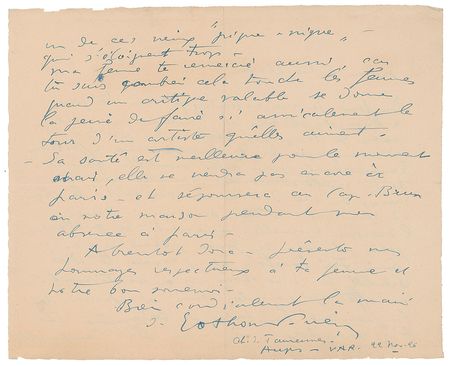 un de ces vieux "pique-nique" -
qui s'éloignent trop -
ma femme te remercie aussi car
tu sais combien cela touche les femmes
quand un critique valable se donne
la peine de faire si amicalement le
tour d'un artiste qu'elles aiment -
- Sa santé est meilleure pour le moment
mais elle ne viendra pas encore à
Paris - et séjournera au Cap. Brun
en notre maison pendant mon
absence à Paris -
A bientôt donc - présente mes
hommages respectueux à ta femme et
notre bon souvenir -
Bien cordialement la main
d' Othon Friesz
Aups - VAR. 22 Nov.